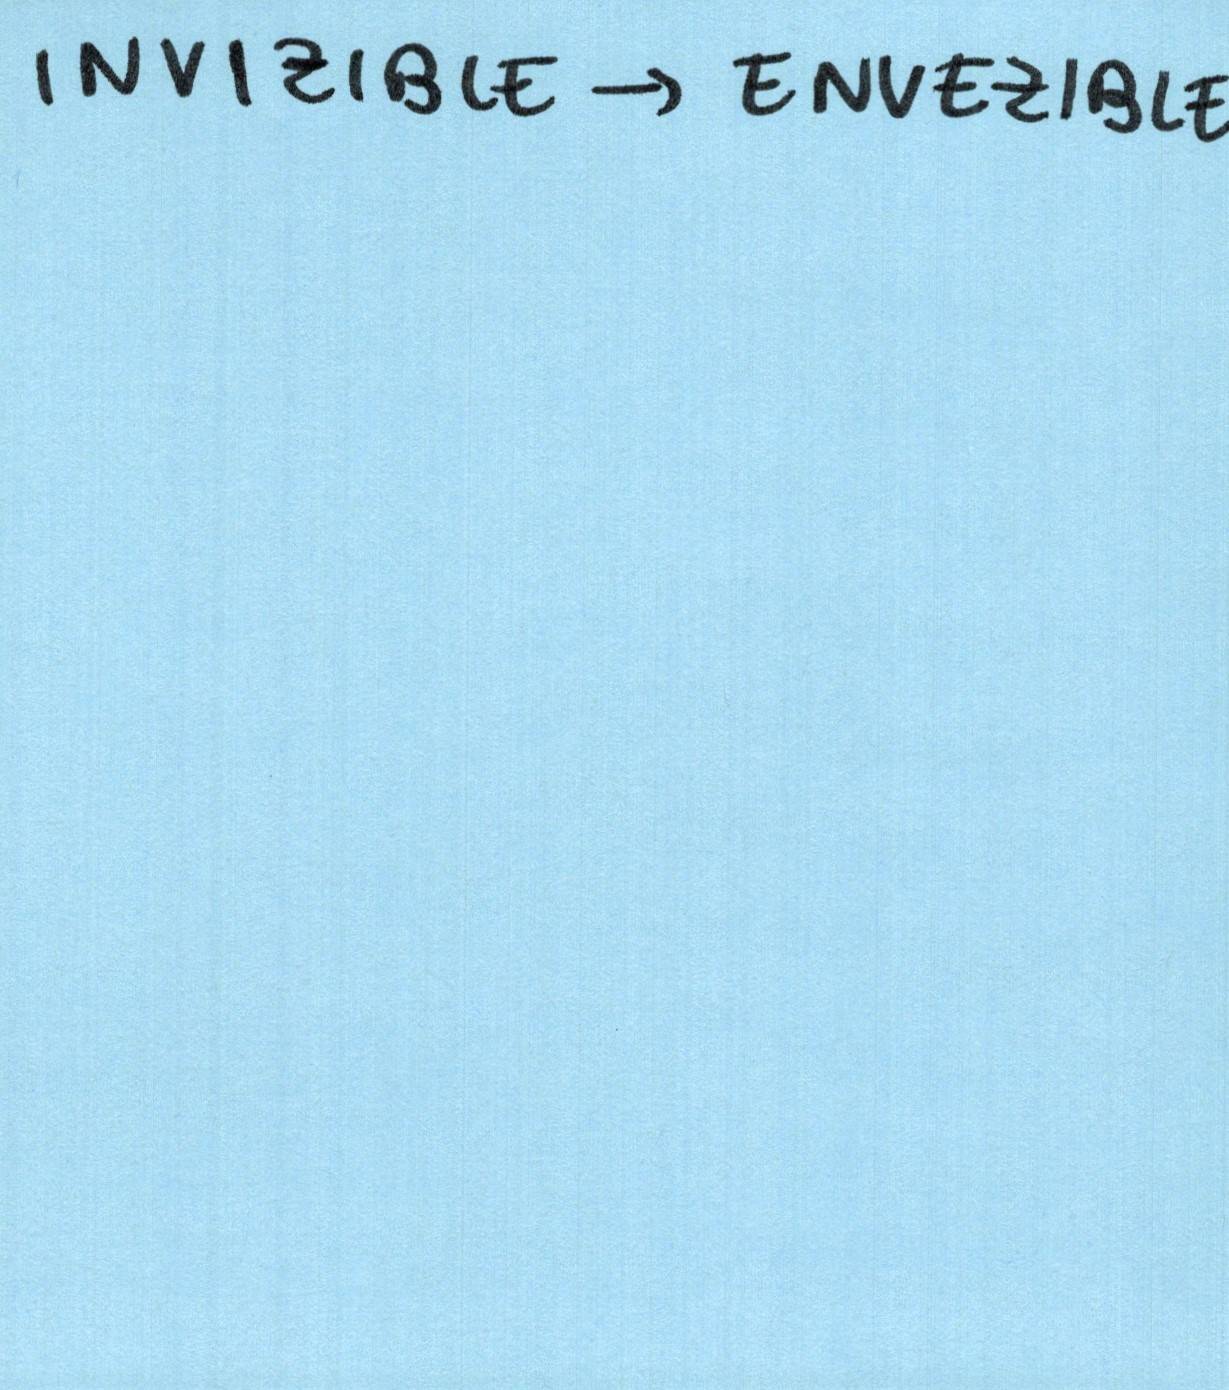 INVIZIBLE → ENVEZIBLE